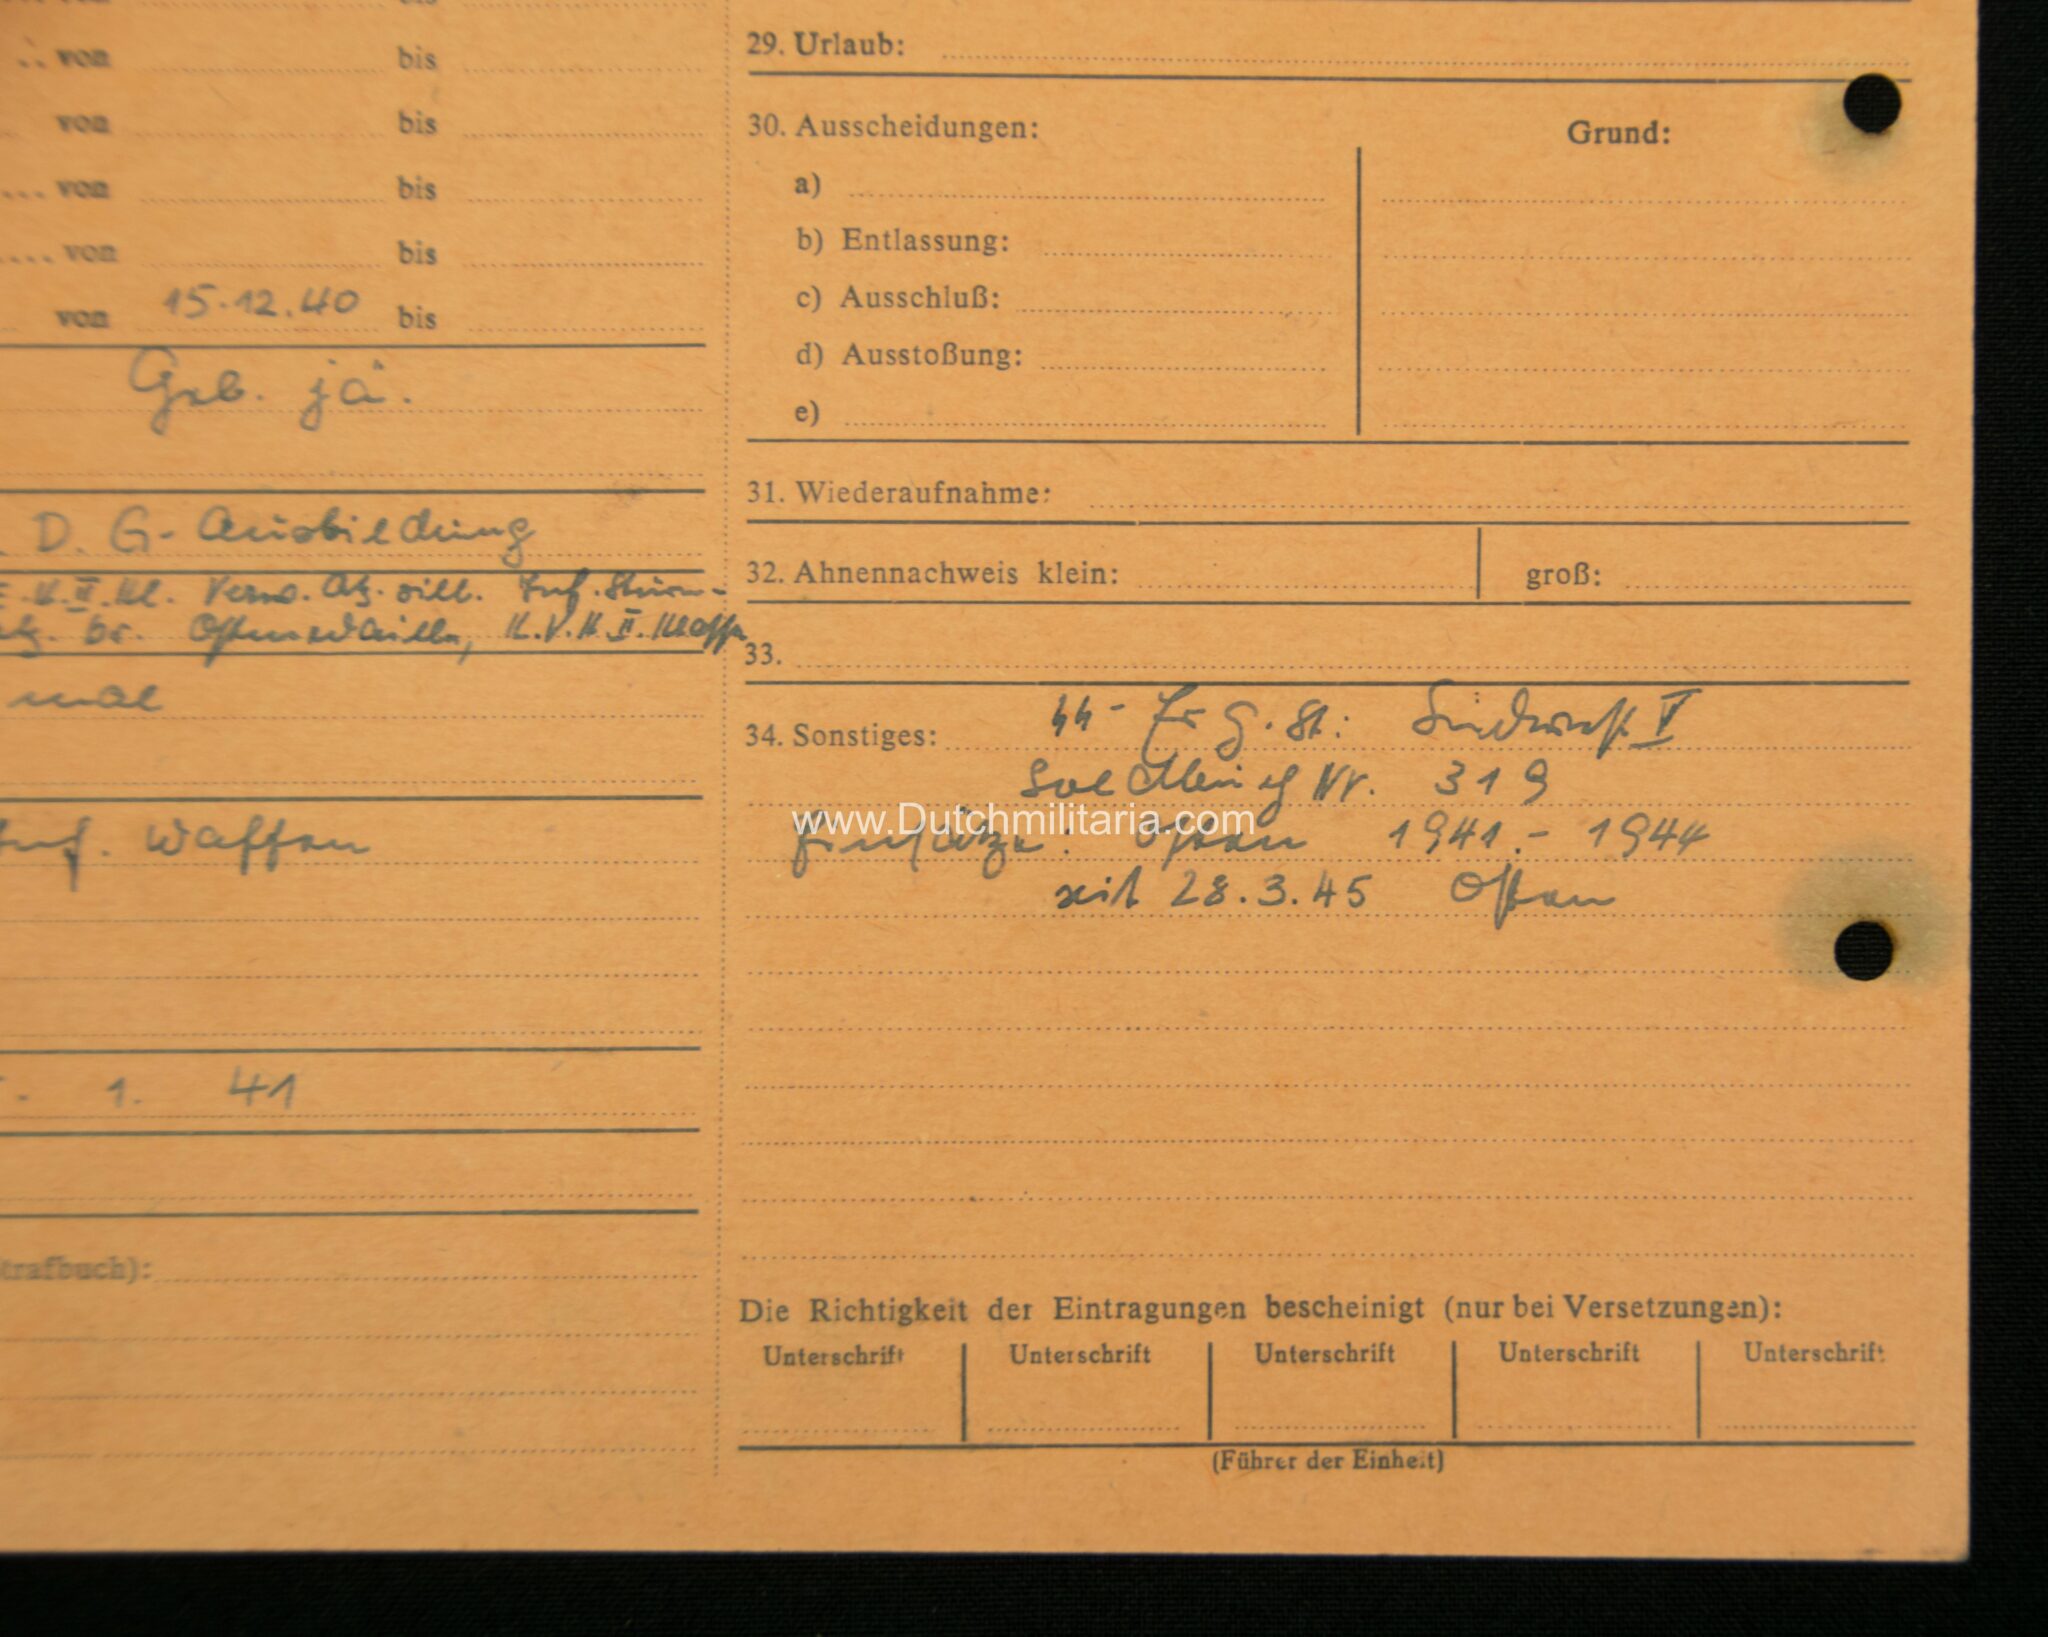 von bis
von bis
von bis
von bis
von 15.12.40 bis
Geb. jä.
D. G- Ausbildung
K. II. Kl. Verw. Abz. silb. Inf. Sturm-
bz. br. Ostmedaille, K.V.K. II. Klasse
mal
Inf. Waffen
1. 41
trafbuch):
29. Urlaub:
30. Ausscheidungen: Grund:
a)
b) Entlassung:
c) Ausschluß:
d) Ausstoßung:
e)
31. Wiederaufnahme:
32. Ahnennachweis klein: groß:
33.
34. Sonstiges: SS - Erg. St: Südwest V
Soldbuch Nr. 319
www.Dutchmilitaria.com
Einsätze: Osten 1941.- 1944
seit 28.3.45 Osten
Die Richtigkeit der Eintragungen bescheinigt (nur bei Versetzungen):
Unterschrift Unterschrift Unterschrift Unterschrift Unterschrift
(Führer der Einheit)